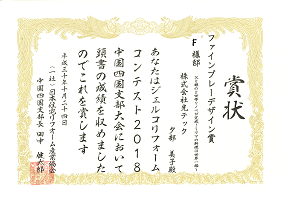 賞状
ファインプレーデザイン賞
F様邸
株式会社光テック
夕部 美子殿
あなたはジェルコリフォーム
コンテスト2018
中国四国支部大会において
頭書の成績を収めました
のでこれを賞します
平成三十年十月二十四日
(一社)日本住宅リフォーム産業協会
中国四国支部長 田中 健太郎